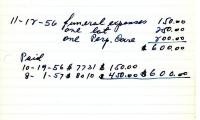 11-12-56 funeral expenses 150.00
one lot 250.00
one Perp. Care 200.00
$600.00
Paid
10-19-56 $7731 $150.00
8-1-57 $8010 $450.00 $600.00